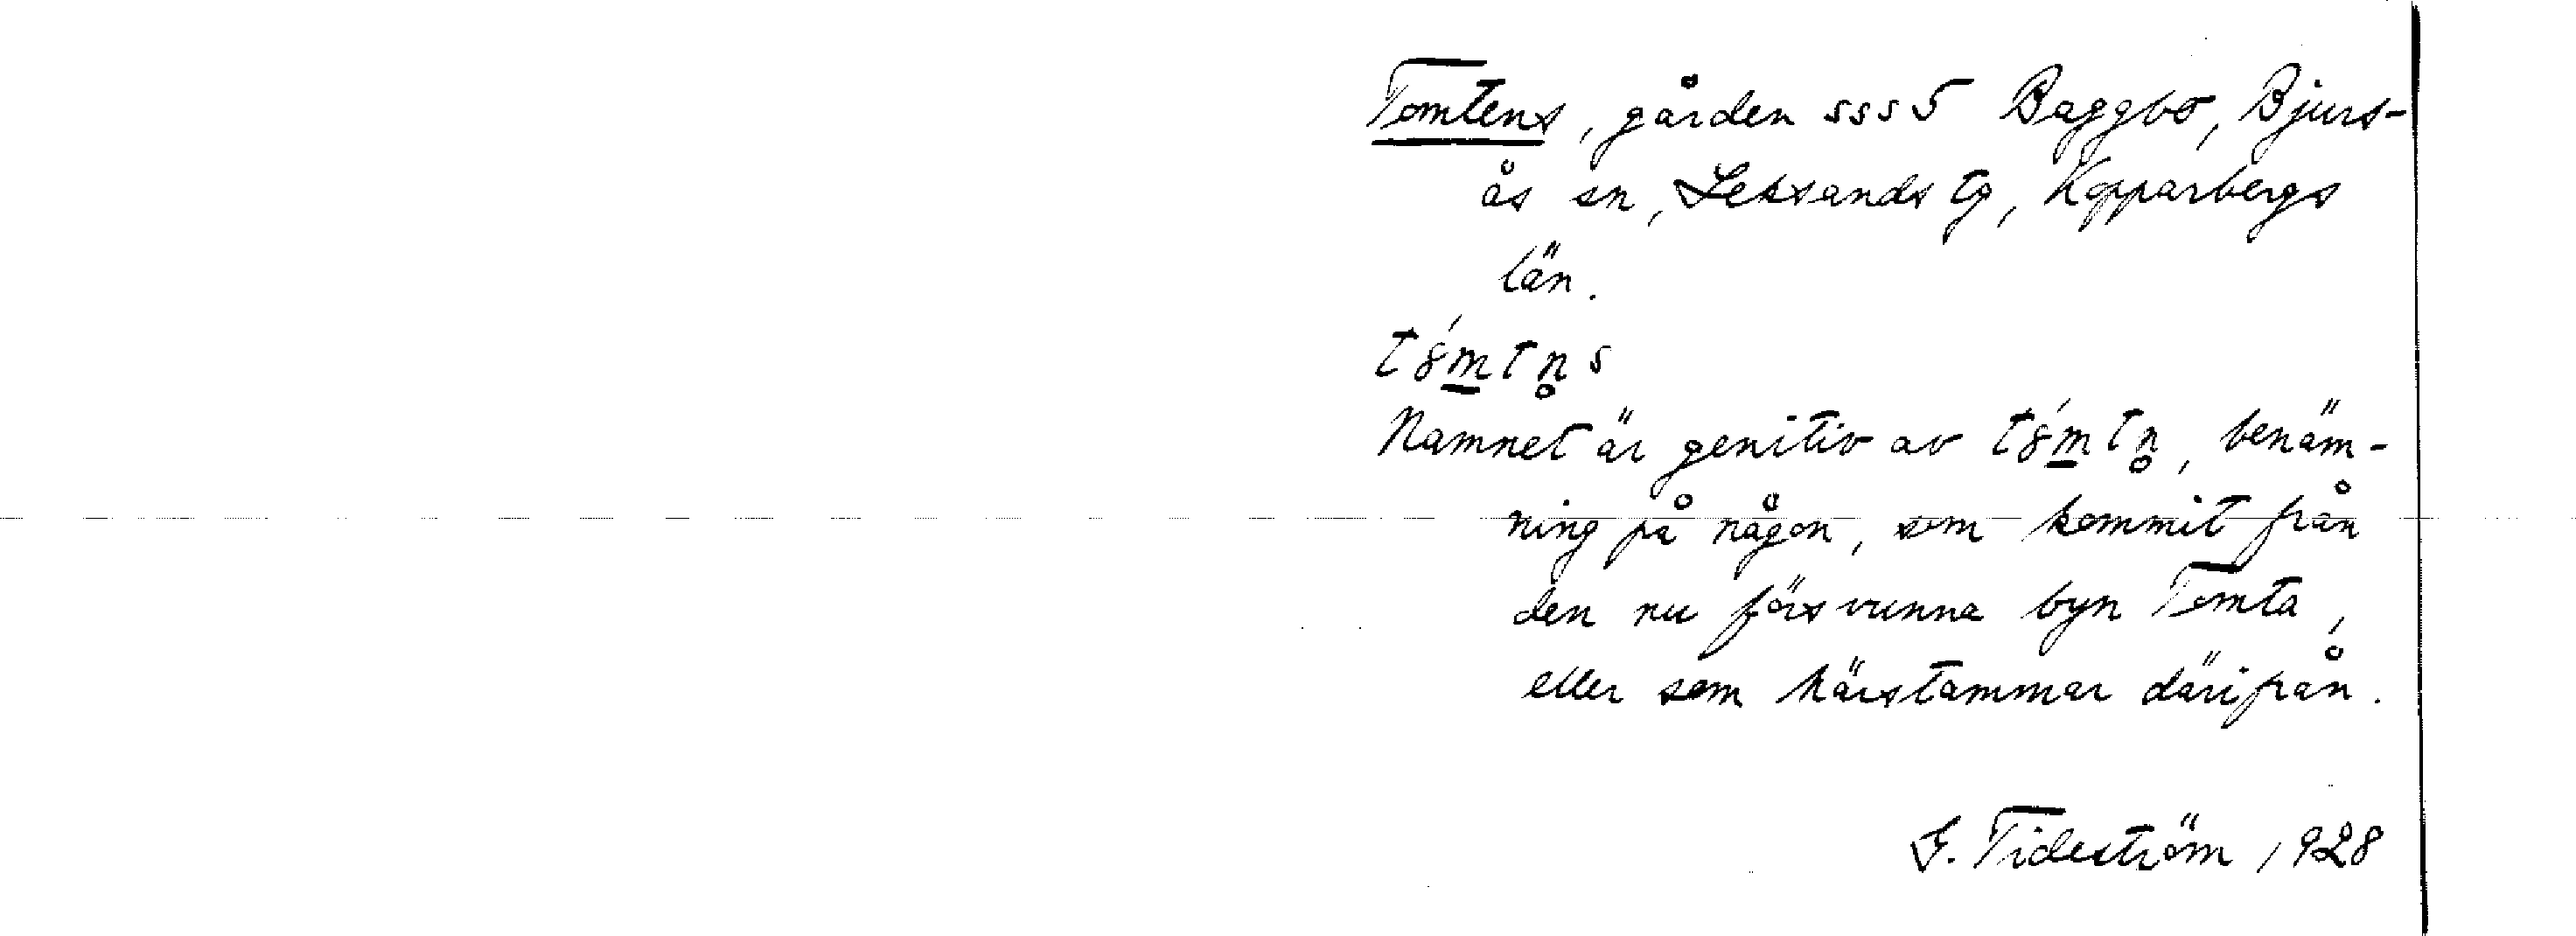 Tomtens, gården sss 5 Baggbo, Bjurs-
ås sn, Leksands tg, Kopparbergs
län.
t8́m̲tn̥s
Namnet är genitiv av t8́m̲tn̥, benäm-
ning på någon, som kommit från
den nu försvunna byn Tomta,
eller som härstammar därifrån.
G. Tideström 1928